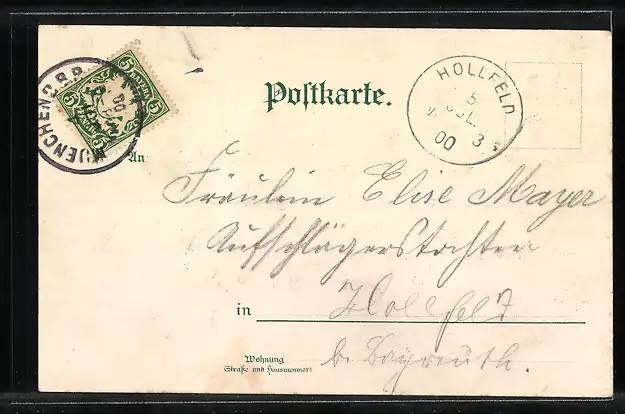 MUENCHEN
5 5
Postkarte.
HOLLFELD
5
JUL.
3
00
An
Fräulein Elise Mayer
Aufschlägerstochter
in Hollfeld
Wohnung
(Straße und Hausnummer)
b. Bayreuth.